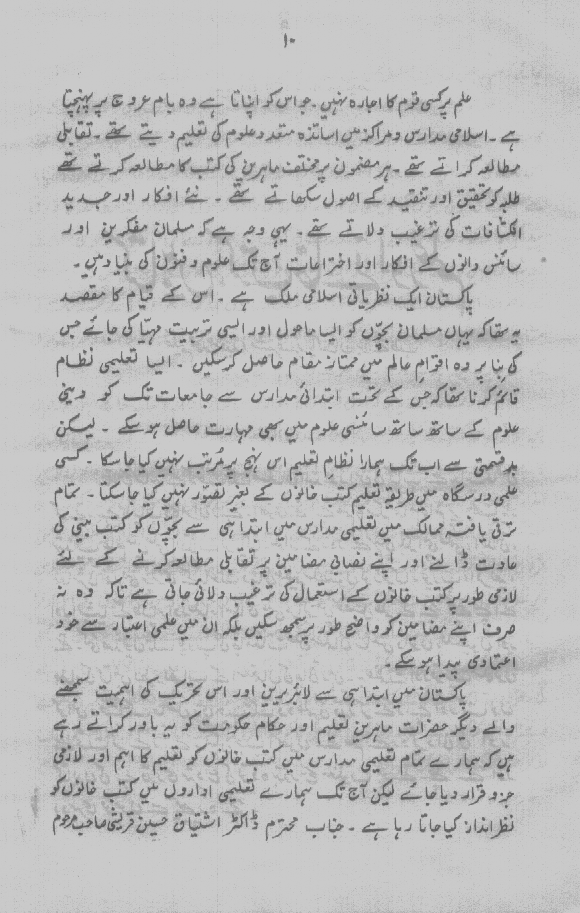 ۱۰
علم پر کسی قوم کا اجارہ نہیں۔ جو اس کو اپناتا ہے وہ بام عروج پر پہنچتا
ہے۔ اسلامی مدارس و مراکز میں اساتذہ متعدد علوم کی تعلیم دیتے تھے۔ تقابلی
مطالعہ کراتے تھے۔ ہر مضمون پر مختلف ماہرین کی کتب کا مطالعہ کرتے تھے
طلبہ کو تحقیق اور تنقید کے اصول سکھاتے تھے۔ نئے افکار اور جدید
انکشافات کی ترغیب دلاتے تھے۔ یہی وجہ ہے کہ مسلمان مفکرین اور
سائنس دانوں کے افکار اور اختراعات آج تک علوم و فنون کی بنیاد ہیں۔
پاکستان ایک نظریاتی اسلامی ملک ہے۔ اس کے قیام کا مقصد
یہ تھا کہ یہاں مسلمان بچوں کو ایسا ماحول اور ایسی تربیت مہیا کی جائے جس
کی بنا پر وہ اقوامِ عالم میں ممتاز مقام حاصل کر سکیں۔ ایسا تعلیمی نظام
قائم کرنا تھا کہ جس کے تحت ابتدائی مدارس سے جامعات تک کو دینی
علوم کے ساتھ ساتھ سائنسی علوم میں بھی مہارت حاصل ہو سکے۔ لیکن
بدقسمتی سے اب تک ہمارا نظامِ تعلیم اس نہج پر مُرتب نہیں کیا جا سکا۔ کسی
علمی درسگاہ میں طریقۂ تعلیم کتب خانوں کے بغیر تصور نہیں کیا جا سکتا۔ تمام
ترقی یافتہ ممالک میں تعلیمی مدارس میں ابتدا ہی سے بچوں کو کتب بینی کی
عادت ڈالنے اور اپنے نصابی مضامین پر تقابلی مطالعہ کرنے کے لئے
لازمی طور پر کتب خانوں کے استعمال کی ترغیب دلائی جاتی ہے تاکہ وہ نہ
صرف اپنے مضامین کو واضح طور پر سمجھ سکیں بلکہ ان میں علمی اعتبار سے خود
اعتمادی پیدا ہو سکے۔
پاکستان میں ابتدا ہی سے لائبریرین اور اس تحریک کی اہمیت سمجھنے
والے دیگر حضرات ماہرین تعلیم اور حکام حکومت کو یہ باور کراتے رہے
ہیں کہ ہمارے تمام تعلیمی مدارس میں کتب خانوں کو تعلیم کا اہم اور لازمی
جزو قرار دیا جائے لیکن آج تک ہمارے تعلیمی اداروں میں کتب خانوں کو
نظر انداز کیا جاتا رہا ہے۔ جناب محترم ڈاکٹر اشتیاق حسین قریشی صاحب مرحوم